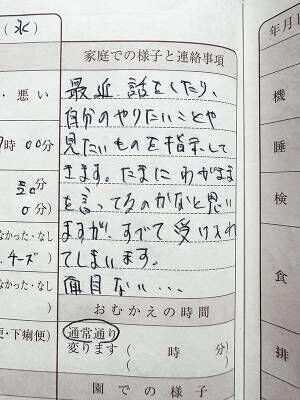 (水)
年月日
家庭での様子と連絡事項
・悪い
機
時00分
睡
30分
0分)
検
なかった・なし
チーズ
食
なかった・なし
)
便・下痢便)
排
最近 話をしたり、
自分のやりたいことや
見たいものを指示して
きます。たまに わがまま
を言ってるのかなと思い
ますが、すべて 受け入れ
てしまいます。
面目ない…
おむかえの時間
通常通り
変ります(時 分)
( )
園での様子